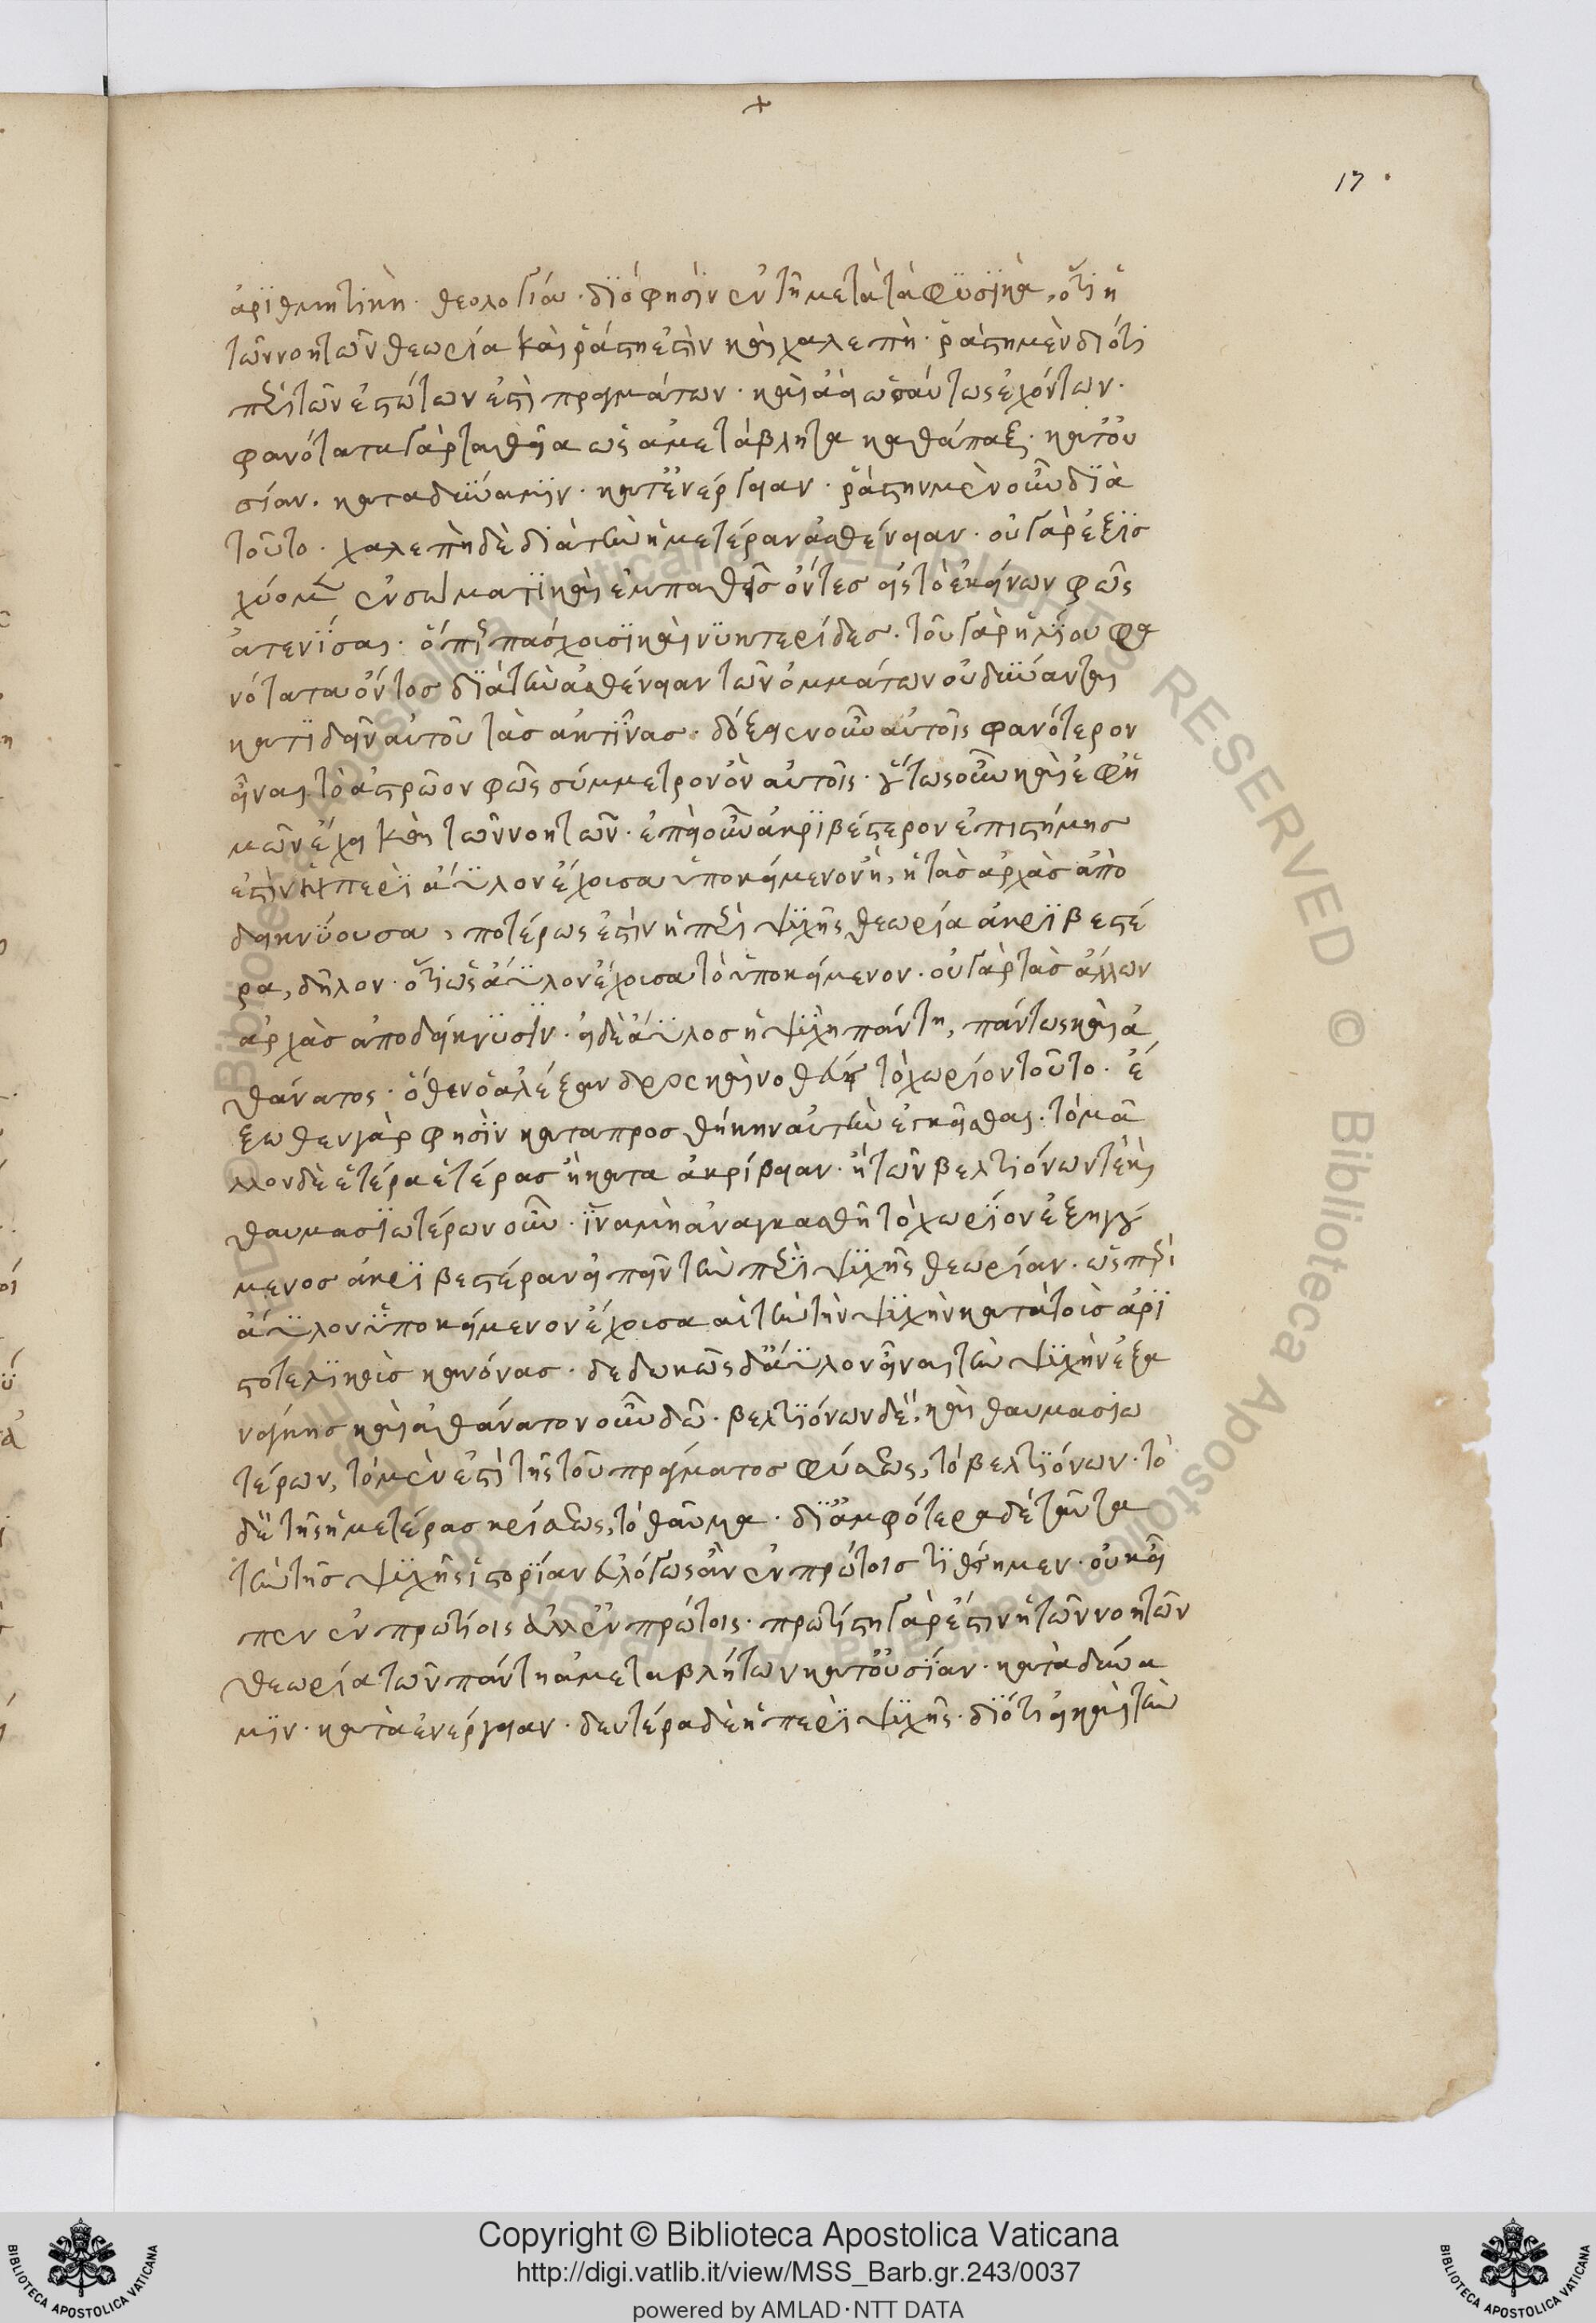 +
17
ἀριθμητικὴ. θεολογίαν. διό φησιν ἐν τῇ μετὰ τὰ φυσικὰ, ὅτι ἡ
τῶν νοητῶν θεωρία καὶ ῥάστη ἐστὶν καὶ χαλεπὴ. ῥάστη μὲν διότι
περὶ τῶν ἑστώτων ἐστὶ πραγμάτων. καὶ ἀεὶ ὡσαύτως ἐχόντων.
φανότατα γὰρ τὰ θεῖα ὡς ἀμετάβλητα καθάπαξ. κατ' οὐ
σίαν. κατὰ δύναμιν. κατ' ἐνέργειαν. ῥάστην μὲν οὖν διὰ
τοῦτο. χαλεπὴ δὲ διὰ τὴν ἡμετέραν ἀσθένειαν. οὐ γὰρ ἐξισ
χύομεν ἐν σώματι καὶ ἐμπαθεῖς ὄντες εἰς τὸ ἐκείνων φῶς
ἀτενίσαι. ὅπερ πάσχουσι καὶ νυκτερίδες. τοῦ γὰρ ἡλίου φα
νότατα ὄντος διὰ τὴν ἀσθένειαν τῶν ὀμμάτων οὐ δύνανται
κατιδεῖν αὐτοῦ τὰς ἀκτῖνας. δόξειεν οὖν αὐτοῖς φανότερον
εἶναι τὸ ἀστρῷον φῶς σύμμετρον ὂν αὐτοῖς. οὕτως οὖν καὶ ἐφ' ἡ
μῶν ἔχει καὶ τῶν νοητῶν. ἐπεὶ οὖν ἀκριβέστερον ἐπιστήμης
ἐστὶν ἡ περὶ ἄϋλον ἔχουσα ὑποκείμενον ἢ, ἡ τὰς ἀρχὰς ἀπο
δεικνύουσα, ποτέρως ἐστὶν ἡ περὶ ψυχῆς θεωρία ἀκριβεστέ
ρα, δῆλον. ὅτι ὡς ἄϋλον ἔχουσα τὸ ὑποκείμενον. οὐ γὰρ τὰς ἄλλων
ἀρχὰς ἀποδείκνυσιν. εἰ δὲ ἄϋλος ἡ ψυχὴ πάντη, πάντως καὶ ἀ
θάνατος. ὅθεν ὁ ἀλέξανδρος καὶ νοθεύει τὸ χωρίον τοῦτο. ἔ
ξωθεν γάρ φησιν κατὰ προσθήκην αὐτὴν ἐγκεῖσθαι. τὸ μᾶ
λλον δὲ ἑτέρα ἑτέρας ἢ κατὰ ἀκρίβειαν. ἢ τῶν βελτιόνων τὲ καὶ
θαυμασιωτέρων οὖν. ἵνα μὴ ἀναγκασθῇ τὸ χωρίον ἐξηγού
μενος ἀκριβεστέραν εἰπεῖν τὴν περὶ ψυχῆς θεωρίαν. ὡς περὶ
ἄϋλον ὑποκείμενον ἔχουσα αὐτὴν τὴν ψυχὴν κατὰ τοὺς ἀρι
στοτελικοὺς κανόνας. δεδωκὼς δ' ἄϋλον εἶναι τὴν ψυχὴν ἐξ ἀ
νάγκης καὶ ἀθάνατον οὖν δῷ. βελτιόνων δὲ, καὶ θαυμασιω
τέρων, τὸ μὲν ἐστὶ τῆς τοῦ πράγματος φύσεως, τὸ βελτιόνων. τὸ
δὲ τῆς ἡμετέρας κρίσεως, τὸ θαῦμα. δι' ἀμφότερα δὲ ταῦτα
τὴν τῆς ψυχῆς ἱστορίαν εὐλόγως ἂν ἐν πρώτοις τιθείημεν. οὐκ εἶ
πεν ἐν πρωτίοις ἀλλ' ἐν πρώτοις. πρωτίστη γὰρ ἐστὶν ἡ τῶν νοητῶν
θεωρία τῶν πάντη ἀμεταβλήτων κατ' οὐσίαν. κατὰ δύνα
μιν. κατὰ ἐνέργειαν. δευτέρα δὲ ἡ περὶ ψυχῆς. διότι εἰ καὶ τὴν
Copyright © Biblioteca Apostolica Vaticana
http://digi.vatlib.it/view/MSS_Barb.gr.243/0037
powered by AMLAD·NTT DATA